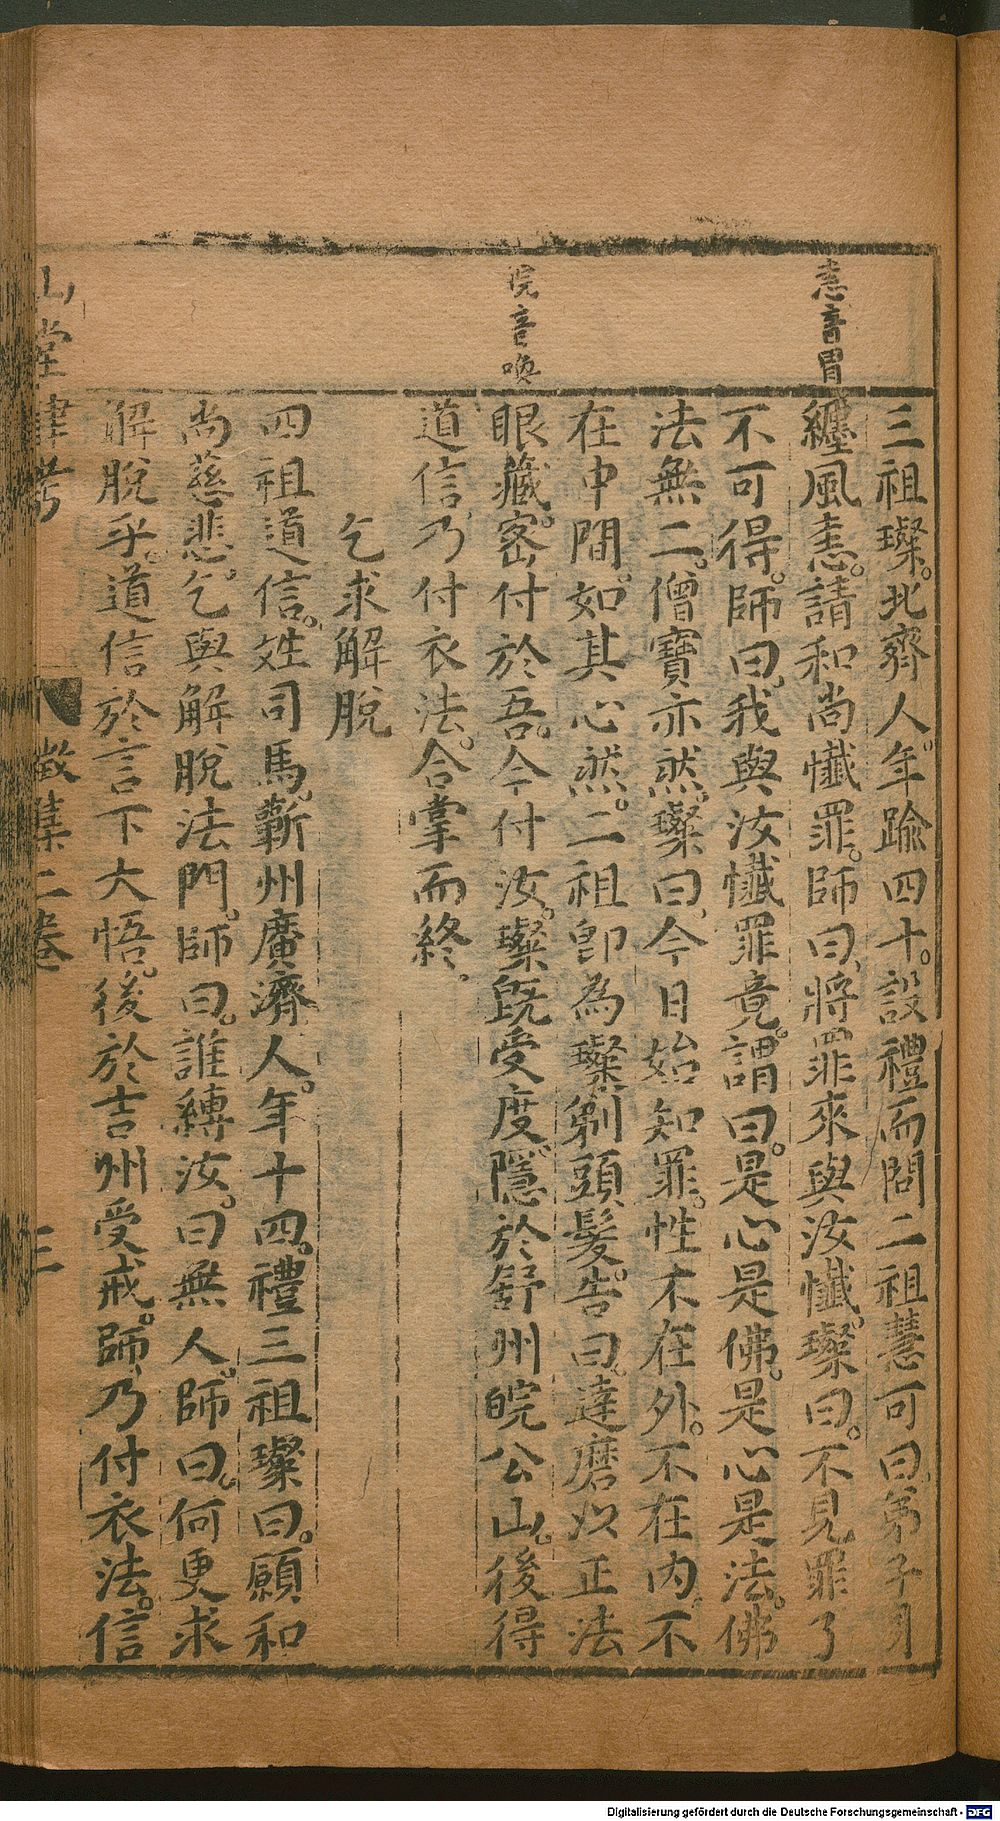 恚音胃
三祖璨。北齊人。年踰四十。設禮而問二祖慧可曰。弟子身
纏風恚。請和尚懺罪。師曰、將罪來與汝懺。璨曰。不見罪了
不可得。師曰。我與汝懺罪竟。謂曰。是心是佛。是心是法。佛
法無二。僧寶亦然。璨曰、今日始知罪。性不在外。不在内。不
在中間。如其心然。二祖即為璨剃頭髮。告曰。達磨以正法
浣音喚
眼藏。密付於吾。今付汝。璨既受度。隱於舒州皖公山。後得
道信。乃付衣法。合掌而終。
乞求解脫
四祖道信。姓司馬。蘄州廣濟人。年十四。禮三祖璨曰。願和
尚慈悲。乞與解脫法門。師曰。誰縛汝。曰無人。師曰。何更求
解脫乎。道信於言下大悟。後於吉州受戒。師乃付衣法。信
山堂肆考 徵集二卷 三
Digitalisierung gefördert durch die Deutsche Forschungsgemeinschaft - DFG